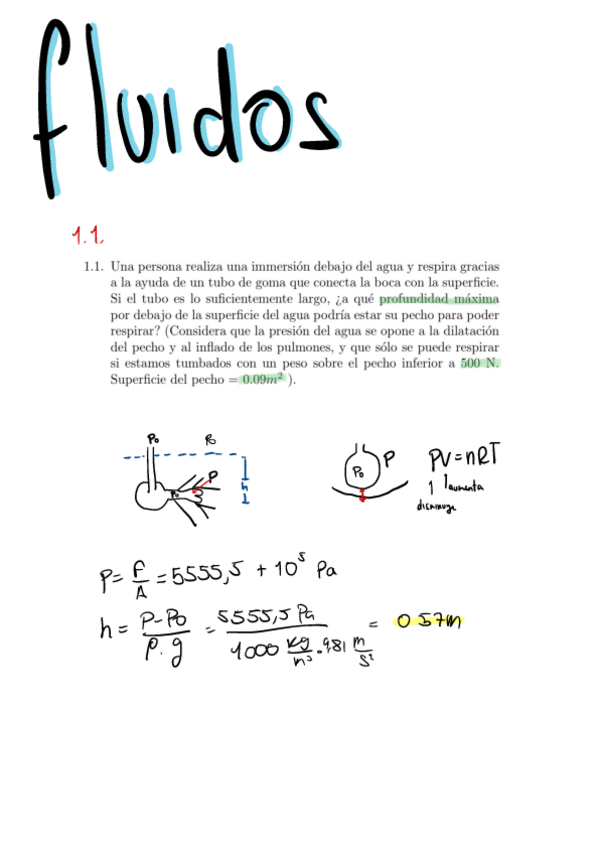 fluidos
1.1.
1.1. Una persona realiza una immersión debajo del agua y respira gracias
a la ayuda de un tubo de goma que conecta la boca con la superficie.
Si el tubo es lo suficientemente largo, ¿a qué profundidad máxima
por debajo de la superficie del agua podría estar su pecho para poder
respirar? (Considera que la presión del agua se opone a la dilatación
del pecho y al inflado de los pulmones, y que sólo se puede respirar
si estamos tumbados con un peso sobre el pecho inferior a 500 N.
Superficie del pecho = 0.09m² ).
Po Po
P
Po
h
P
Po
PV=nRT
1 1 aumenta
disminuye
P= F/A = 5555,5 + 10⁵ Pa
h = P-Po/ρ.g = 5555,5 Pa/1000 kg/m³ . 9.81 m/s² = 0.57m